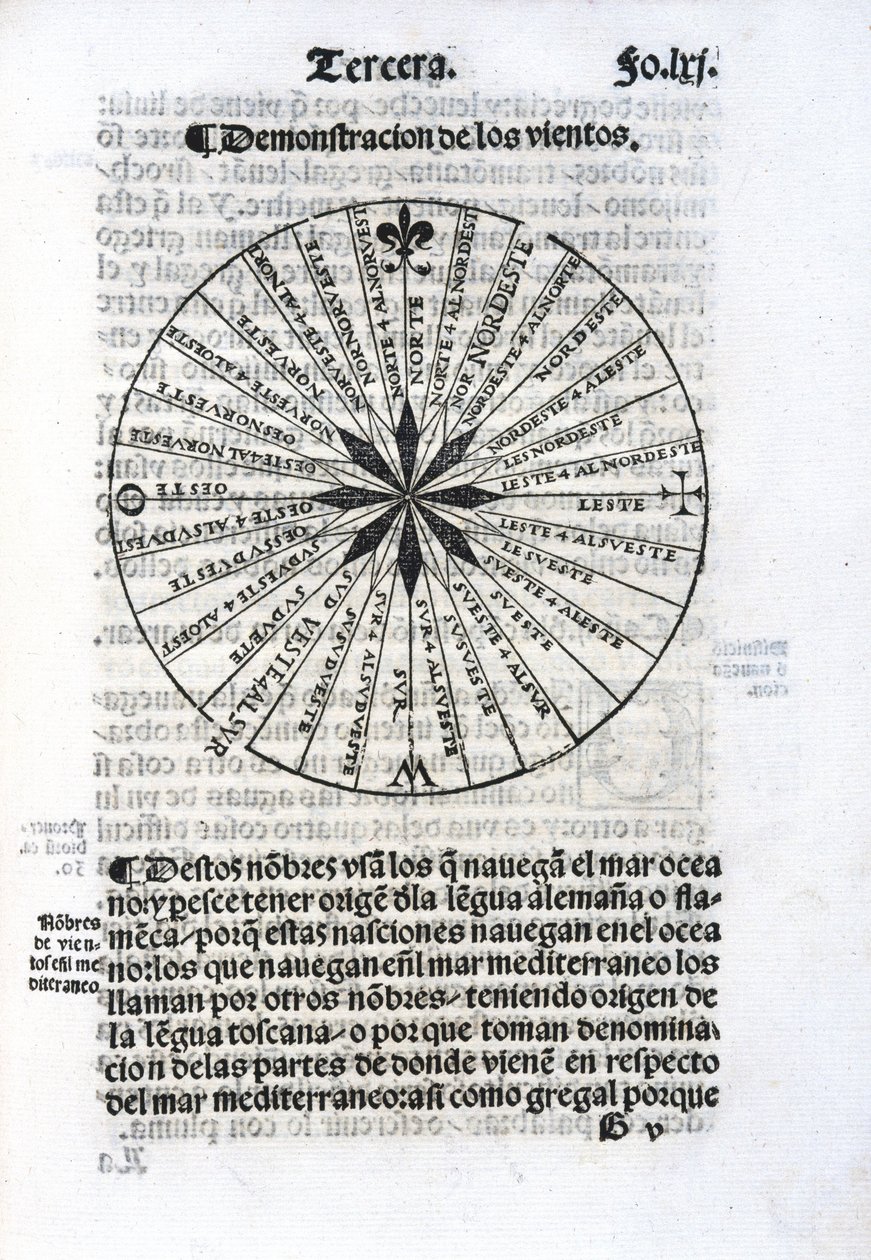 Tercera.
Fo.lxj.
¶Demonstracion de los vientos.
NORTE
NORTE 4 AL NORDEST
NOR NORDESTE
NORDESTE 4 AL NORTE
NORDESTE
NORDESTE 4 ALESTE
LES NORDESTE
LESTE 4 AL NORDESTE
LESTE
LESTE 4 ALSVESTE
LE SVESTE
SVESTE 4 ALESTE
SVESTE
SVESTE 4 ALSVR
SVSVESTE
SVR 4 ALSVESTE
SVR
W
SVR 4 ALSVDVESTE
SVSVDVESTE
SVD VESTE 4 ALSVR
SVDVETE
SVDVESTE 4 ALOEST
OESSVDVESTE
OESTE 4 ALSVDVEST
OESTE
O
OESTE 4 AL NORVESTE
OESNORVESTE
NORVESTE 4 ALOESTE
NORVESTE
NORVESTE 4 ALNORE
NORNORVESTE
NORTE 4 ALNORVEST
¶Destos nõbres vsã los q̃ nauegã el mar ocea
no:y pesce tener origẽ dla lẽgua alemaña o fla-
mẽca/porq̃ estas nasciones nauegan enel ocea
no:los que nauegan eñl mar mediterraneo los
llaman por otros nõbres/teniendo origen de
la lẽgua toscana/o por que toman denomina
cion delas partes de donde vienẽ en respecto
del mar mediterraneo:asi como gregal porque
Nõbres
de vien-
tos eñl me
diteraneo
G v